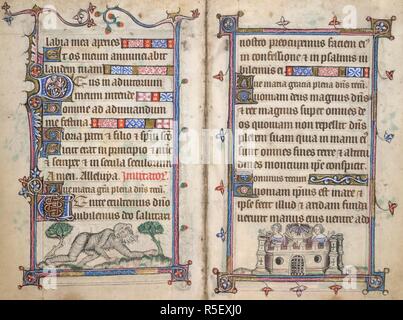 labia mea aperies
Et os meum annunciabit
laudem tuam
Deus in adiutorium
meum intende
Domine ad adiuvandu
me festina
Gloria patri et filio et spui sco
Sicut erat in principio et nuc
et semper et in secula seculorum
Amen. Alleluya.
Ave maria gra plena dns tecu.
Venite exultemus dno
iubilemus deo salutari
nostro preocupemus faciem ei
in confessione et in psalmis iu
bilemus ei
Ave maria gracia plena dns tecu.
Quoniam deus magnus dns
et rex magnus super omnes de
os quoniam non repellit dns
plebem suam quia in manu ei
sunt omnes fines terre et altitu
dines moncium ipse conspicit
Dominus tecum
Quoniam ipsius est mare et
ipse fecit illud et aridam funda
verunt manus eius venite ado
alamy
R5EXJ0